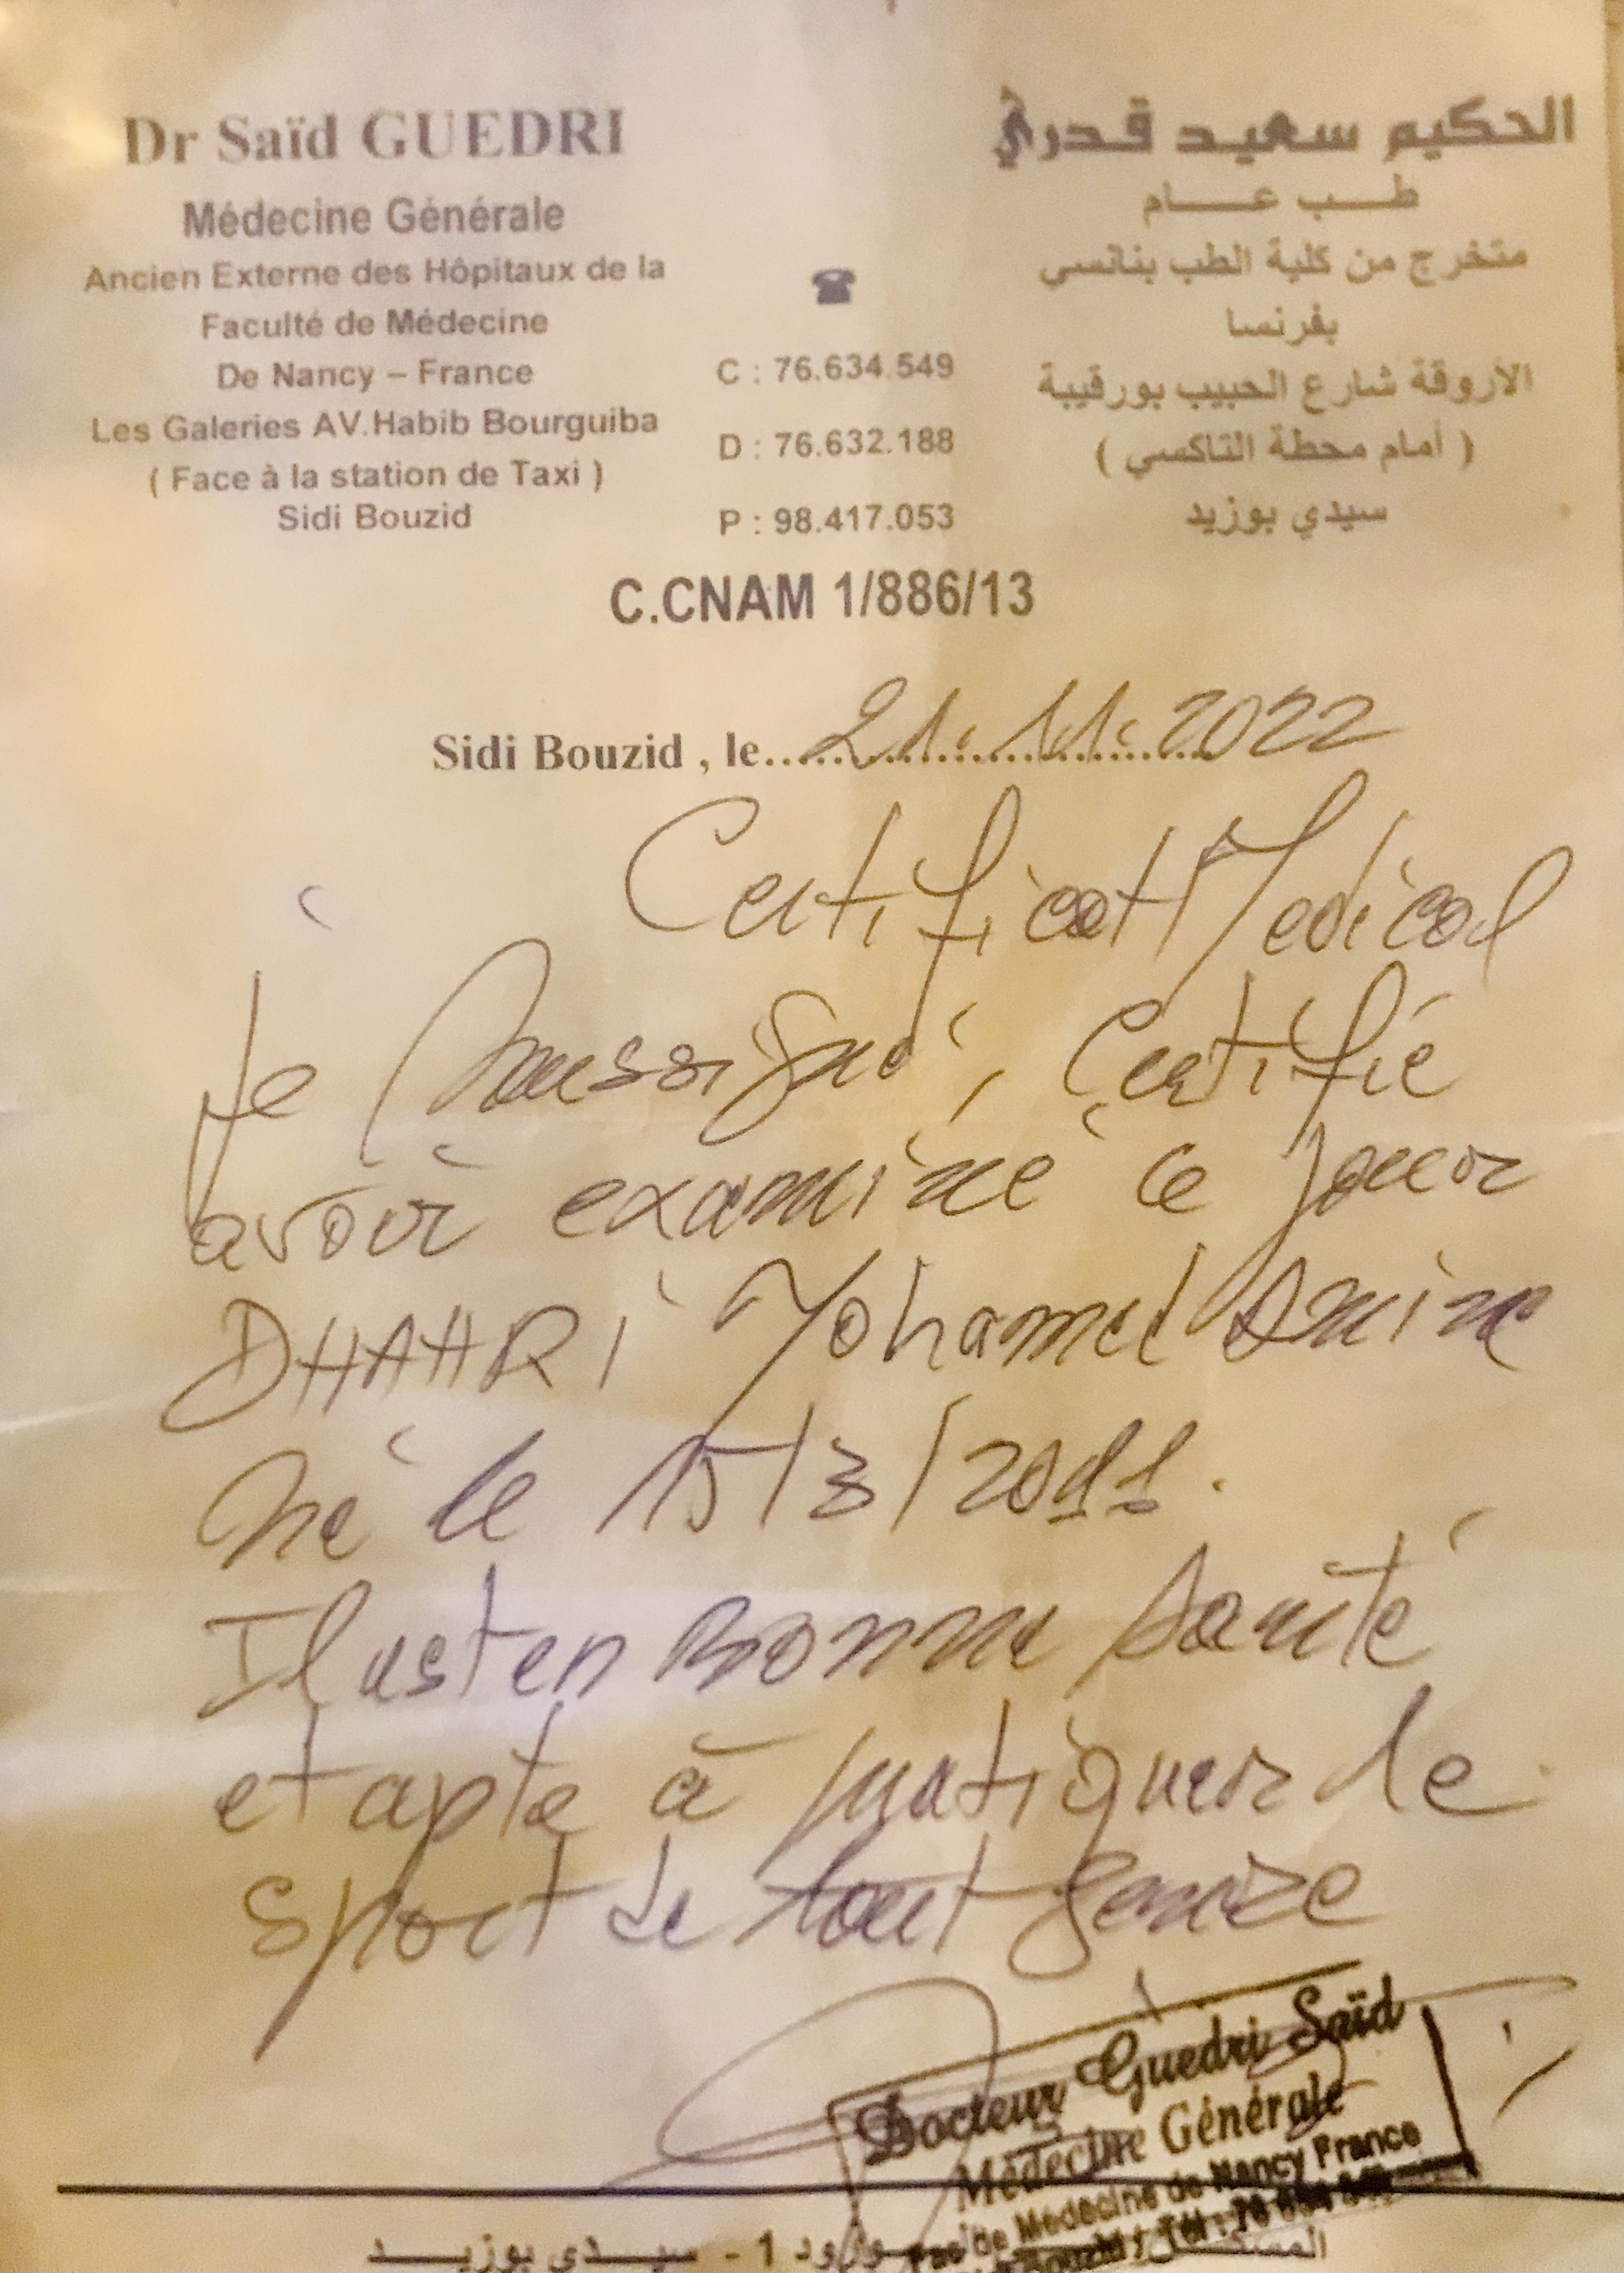 Dr Saïd GUEDRI
Médecine Générale
Ancien Externe des Hôpitaux de la
Faculté de Médecine
De Nancy – France
Les Galeries AV.Habib Bourguiba
( Face à la station de Taxi )
Sidi Bouzid
☎
C : 76.634.549
D : 76.632.188
P : 98.417.053
الحكيم سعيد قدري
طب عام
متخرج من كلية الطب بنانسي
بفرنسا
الأروقة شارع الحبيب بورقيبة
( أمام محطة التاكسي )
سيدي بوزيد
C.CNAM 1/886/13
Sidi Bouzid , le 21.11.2022
Certificat Medical
Je soussigné, Certifié
avoir examiné ce jour
DHAHRi Mohamed Amine
né le 15/3/2011.
Il est en Bonne santé
et apte à pratiquer le
sport de tout genre
Docteur Guedri Saïd
Médecine Générale
Fac de Médecine de Nancy France
Bouzid / Tél : 76 634 549
1 - سيدي بوزيد